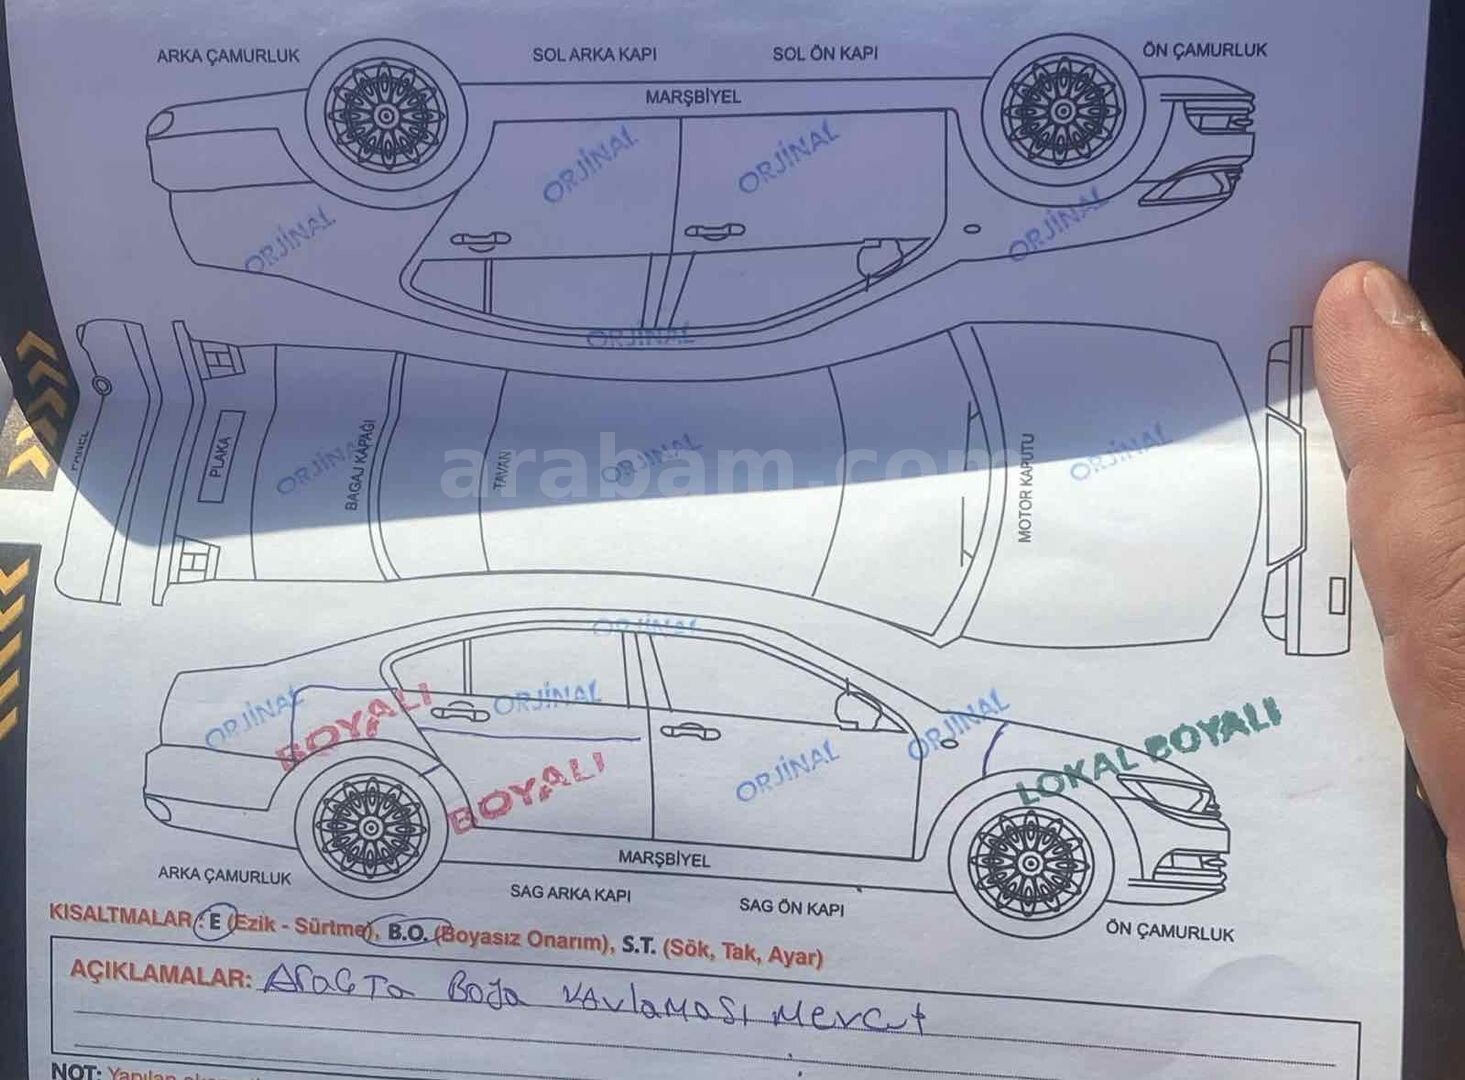 ARKA ÇAMURLUK SOL ARKA KAPI SOL ÖN KAPI ÖN ÇAMURLUK
MARŞBİYEL
ORJİNAL ORJİNAL
ORJİNAL ORJİNAL
ORJİNAL
PANEL
PLAKA
ORJİNAL
BAGAJ KAPAĞI
TAVAN
ORJİNAL
MOTOR KAPUTU
ORJİNAL
arabam.com
ORJİNAL
ORJİNAL BOYALI ORJİNAL ORJİNAL LOKAL BOYALI
BOYALI ORJİNAL
MARŞBİYEL
ARKA ÇAMURLUK SAG ARKA KAPI SAG ÖN KAPI ÖN ÇAMURLUK
KISALTMALAR : E (Ezik - Sürtme), B.O. (Boyasız Onarım), S.T. (Sök, Tak, Ayar)
AÇIKLAMALAR: Araçta Boya Kavlaması Mevcut
NOT: Yapılan